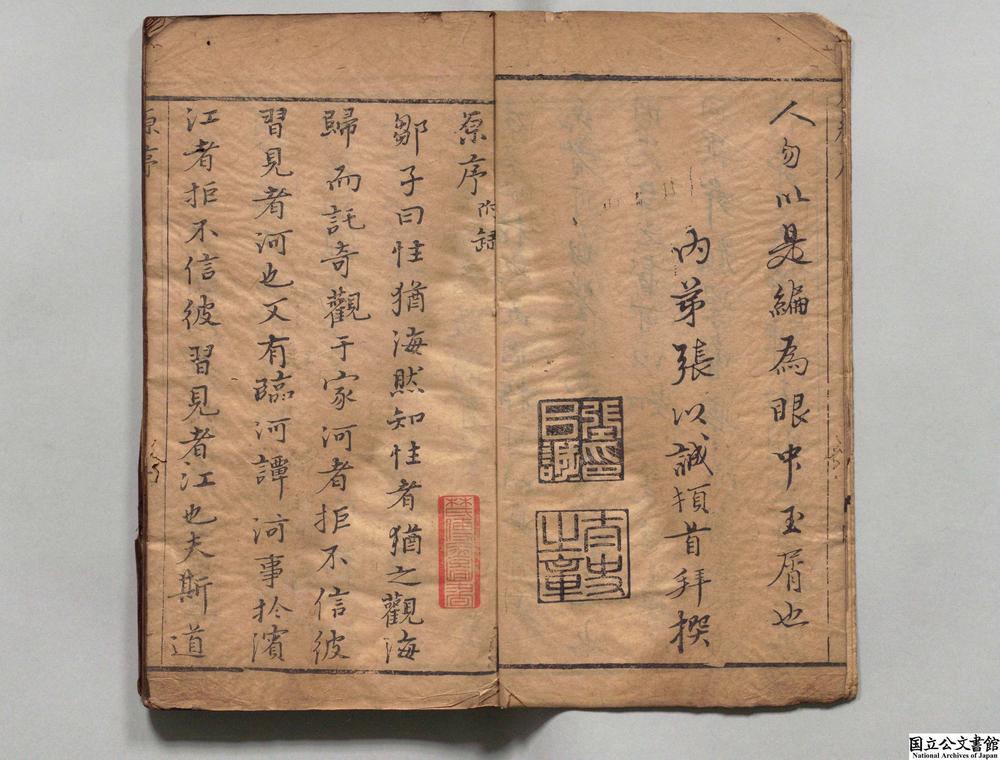 人勿以是編為眼中玉屑也
內弟張以誠頓首拜撰
張以誠印
太史之章
原序附録
鄒子曰性猶海然知性者猶之觀海
歸而託奇觀于家河者拒不信彼
習見者河也又有臨河譚河事於濱
江者拒不信彼習見者江也夫斯道
原序
国立公文書館
National Archives of Japan